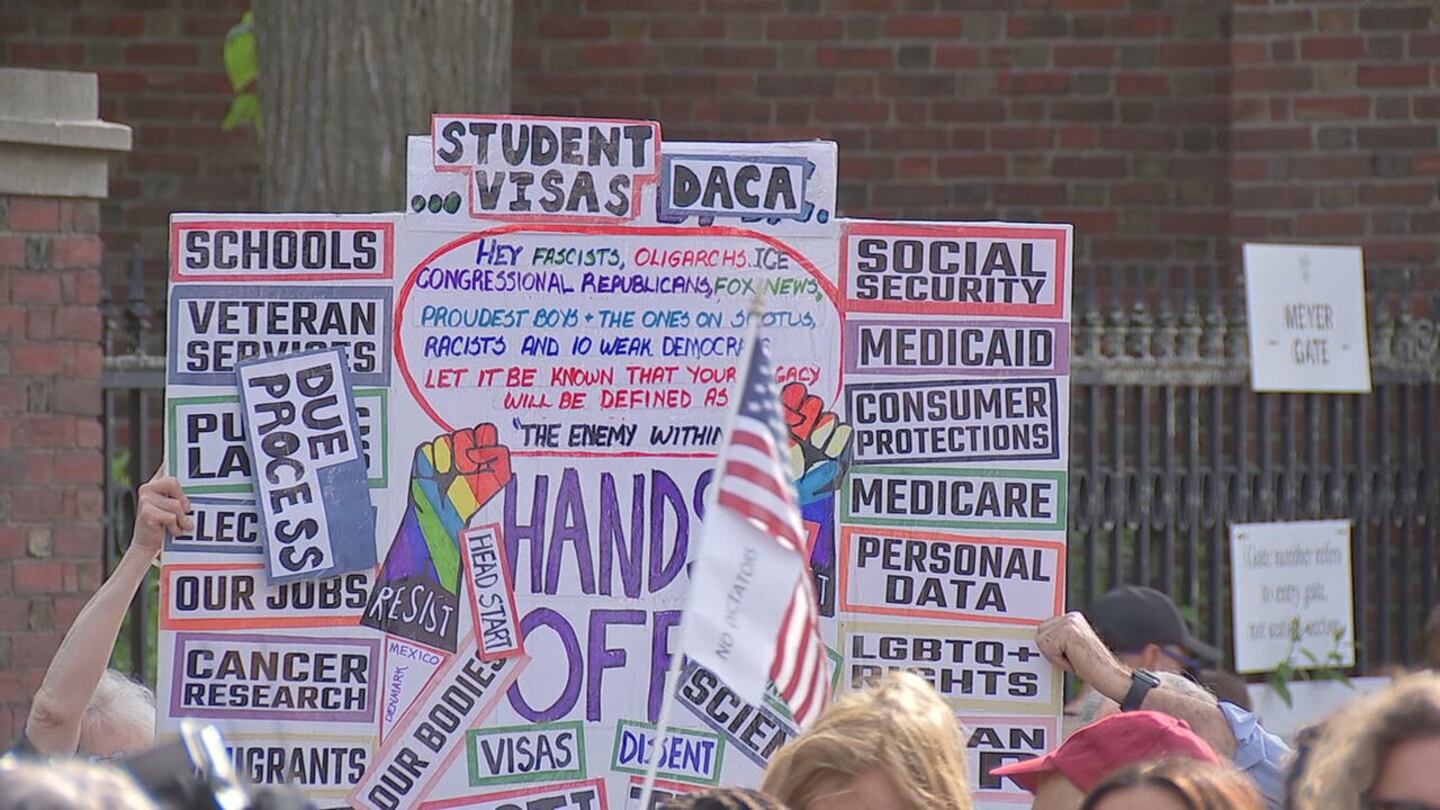 STUDENT
... VISAS
DACA
SCHOOLS
VETERAN
SERVICES
DUE
PROCESS
OUR JOBS
CANCER
RESEARCH
HEY FASCISTS, OLIGARCHS. ICE
CONGRESSIONAL REPUBLICANS, FOX NEWS,
PROUDEST BOYS + THE ONES ON SCOTUS,
RACISTS AND 10 WEAK
LET IT BE KNOWN THAT YOUR
WILL BE DEFINED AS
"THE ENEMY WITHIN
HANDS
OFF
RESIST
HEAD START
MEXICO
DENMARK
OUR BODIES
VISAS
DISSENT
NO DICTATORS
SOCIAL
SECURITY
MEDICAID
CONSUMER
PROTECTIONS
MEDICARE
PERSONAL
DATA
LGBTQ+
RIGHTS
MEYER
GATE
to entry gate,